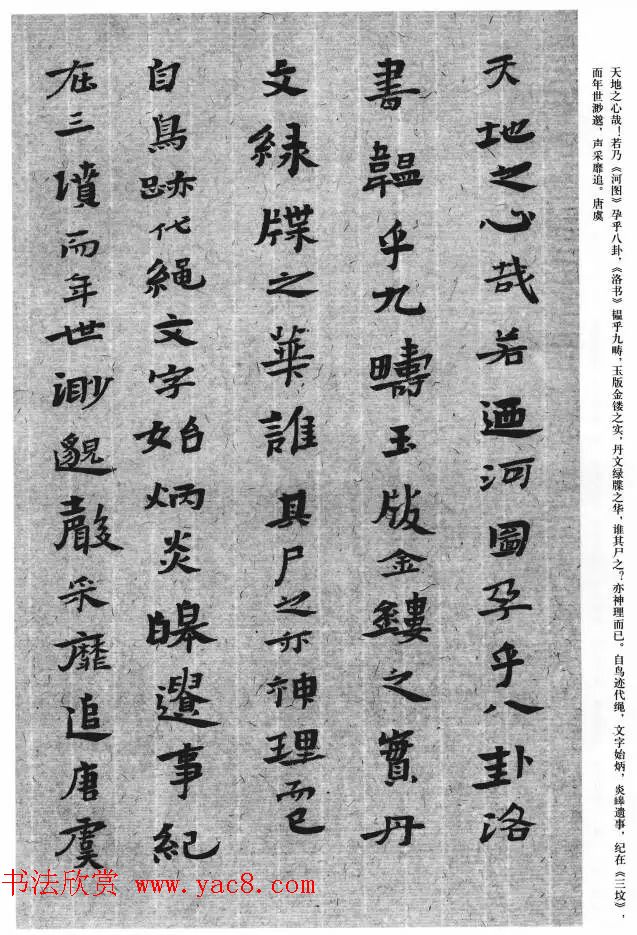 天地之心哉！若乃《河图》孕乎八卦，《洛书》韫乎九畴，玉版金镂之实，丹文绿牒之华，谁其尸之？亦神理而已。自鸟迹代绳，文字始炳，炎皞遗事，纪在《三坟》，
而年世渺邈，声采靡追。唐虞
天地之心哉若迺河圖孕乎八卦洛
書韞乎九疇玉版金鏤之實丹
文緑牒之華誰其尸之亦神理而已
自鳥跡代繩文字始炳炎皞遺事紀
在三墳而年世渺邈聲采靡追唐虞
书法欣赏 www.yac8.com